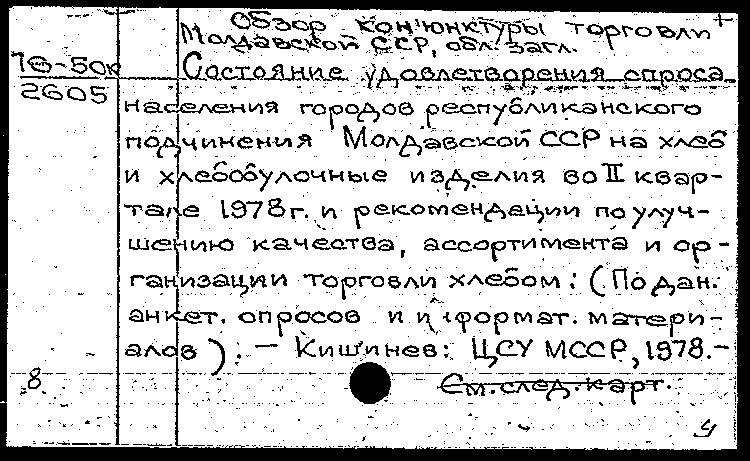 Обзор конъюнктуры торговли +
Молдавской ССР, обл. загл.
78-50к
2605
Состояние удовлетворения спроса
населения городов республиканского
подчинения Молдавской ССР на хлеб
и хлебобулочные изделия во II квар-
тале 1978 г. и рекомендации по улуч-
шению качества, ассортимента и ор-
ганизации торговли хлебом: (По дан.
анкет. опросов и информат. матери-
алов). — Кишинев: ЦСУ МССР, 1978.-
8
См. след. карт.
у